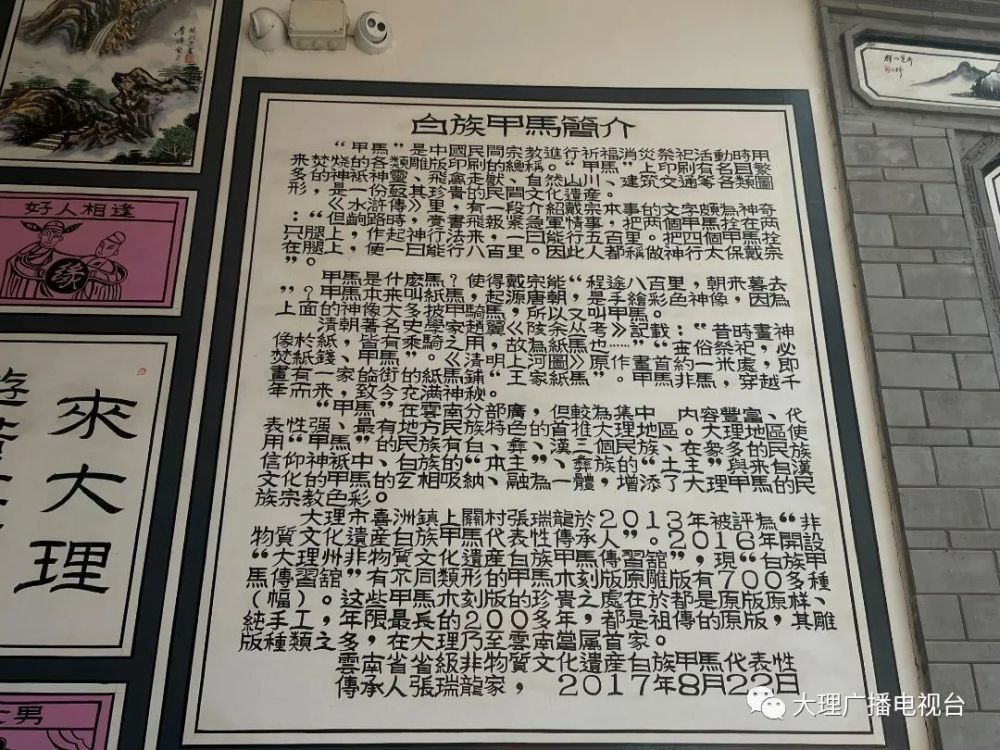 白族甲馬簡介
"甲馬"是中國民間宗教進行祈福消災祭祀活動時用
来焚烧的各類雕版印刷的總稱。"甲馬"上印刷有名目繁
多的神祇、神靈、飛禽走獸、自然山川、建筑交通等各類圖
形，是一份其珍貴的民間文化遺産。
《水滸傳》里，有一段介紹戴宗本事的文字頗為神奇
："但餉路時，書報緊急軍情事，把两個甲馬拴在两
只腿上，作起神行法来，一日能行五百里。把四個甲馬拴
在腿上，便一日能行八百里。因此人都稱做神行太保戴宗
"。
甲馬是什麽馬？使得戴宗能"程途八百里，朝来暮去
"？甲馬本来叫紙馬，起源唐朝，是手繪彩色神像，因為
上面的神像大多披甲騎馬，所以又叫甲馬。
清朝著名史學家趙翼《陔余丛考》記載："昔時畫神
像於紙，皆有乘騎之用，故為紙馬也……""蛮俗祭祀，必
焚紙錢、甲馬"。《清明上河圖》原作畫首約一米處，即
畫有一家臨街的紙馬鋪"王家紙馬"。甲馬非馬，穿越千
年而来，致今充满神秘。
"甲馬"在雲南分部廣，但較為集中、内容豐富、代
表性强、最有地方特色的首推大理地區。大理地區使
用"甲馬"的民族有白、彝、漢三個民族。在衆多的民族
信仰神祇中、白族的"本主"、彝族的"土主"與来自漢
文化神的互相吸納、融為一體，增添了大理甲馬的民
族宗教色彩。
大理市喜洲鎮上關村張瑞龍於2013年被評為"非
物質文化遺産白族甲馬代表性傳承人"。2016年開設
"大理州非物質文化遺産白族甲馬傳習舘"，現"白族甲
馬傳習舘"有不同類形的甲馬木刻版原雕版有700多種
（幅）。這些甲馬木刻版的珍貴之處在於都是原版原様、
純手工，年限最長的200多年，都是祖傳的原版，其雕
版種類之多，在大理乃至雲南當属首家。
雲南省省級非物質文化遺産白族甲馬代表性
傳承人張瑞龍家，2017年8月22日
好人相逢
來大理
男
大理广播电视台